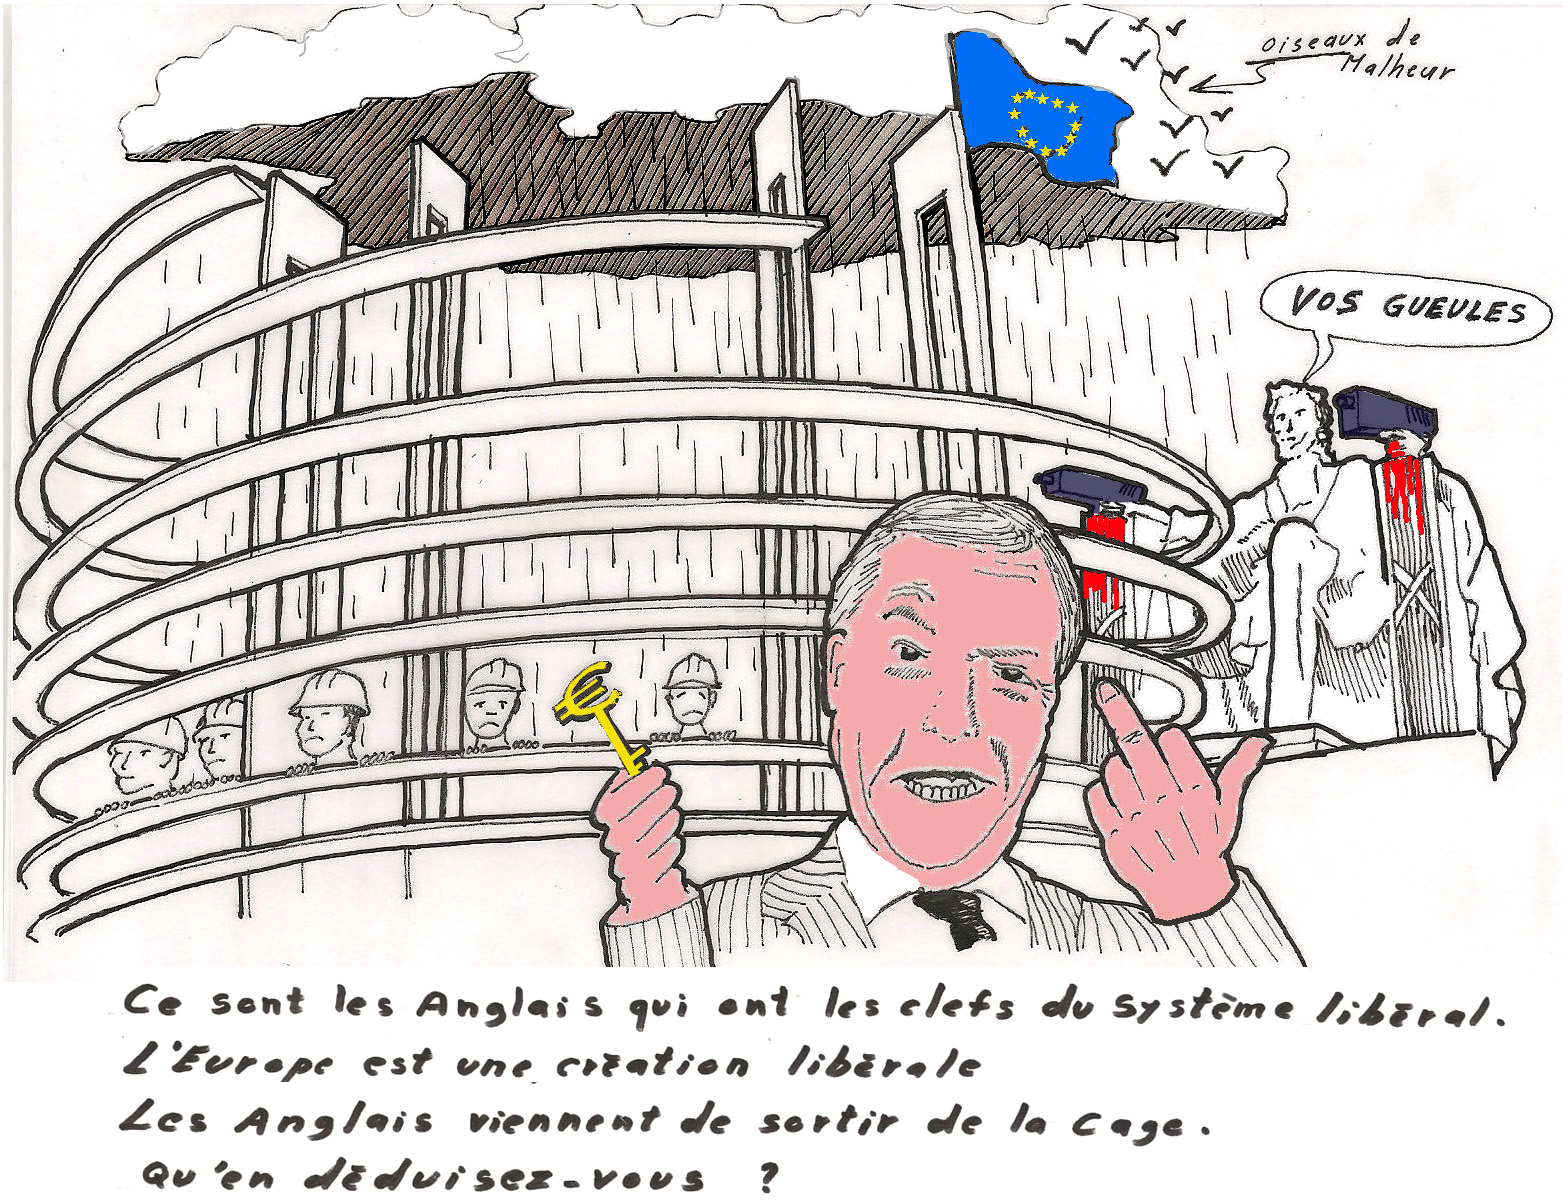 oiseaux de
Malheur
VOS GUEULES
Ce sont les Anglais qui ont les clefs du système libéral.
L'Europe est une création libérale
Les Anglais viennent de sortir de la cage.
Qu'en déduisez-vous ?